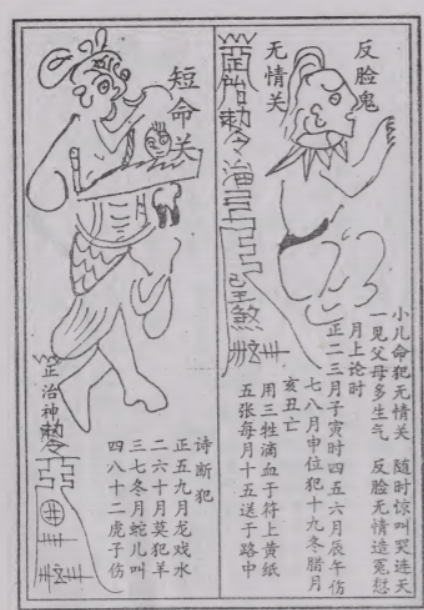 反脸鬼
无情关
小儿命犯无情关 随时惊叫哭连天
一见父母多生气 反脸无情造冤愆
月上论时
正二三月子寅时四五六月辰午伤
七八月申位犯十九冬腊月
亥丑亡
用三牲滴血于符上黄纸
五张每月十五送于路中
敕令
煞
短命关
诗断犯
正五九月龙戏水
二六十月莫犯羊
三七冬月蛇儿叫
四八十二虎子伤
正治神敕令